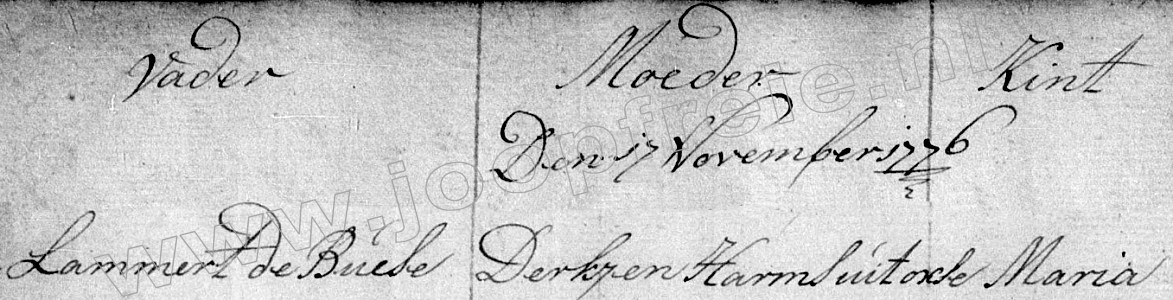 Vader Moeder Kint
Den 17 November 1776
Lammert de Buese Derkjen Harmsuitorde Maria
www.joopfreie.nl